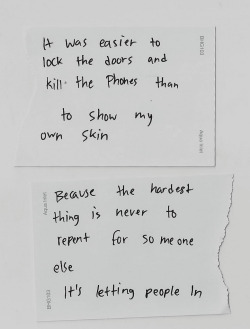 It was easier to
lock the doors and
kill the Phones than
to show my
own skin
Because the hardest
thing is never to
repent for someone
else
It's letting people In